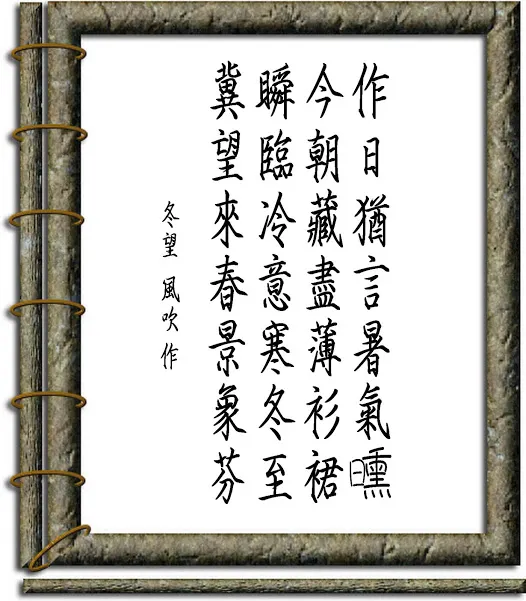 作日猶言暑氣曛
今朝藏盡薄衫裙
瞬臨冷意寒冬至
冀望來春景象芬
冬望 風吹 作